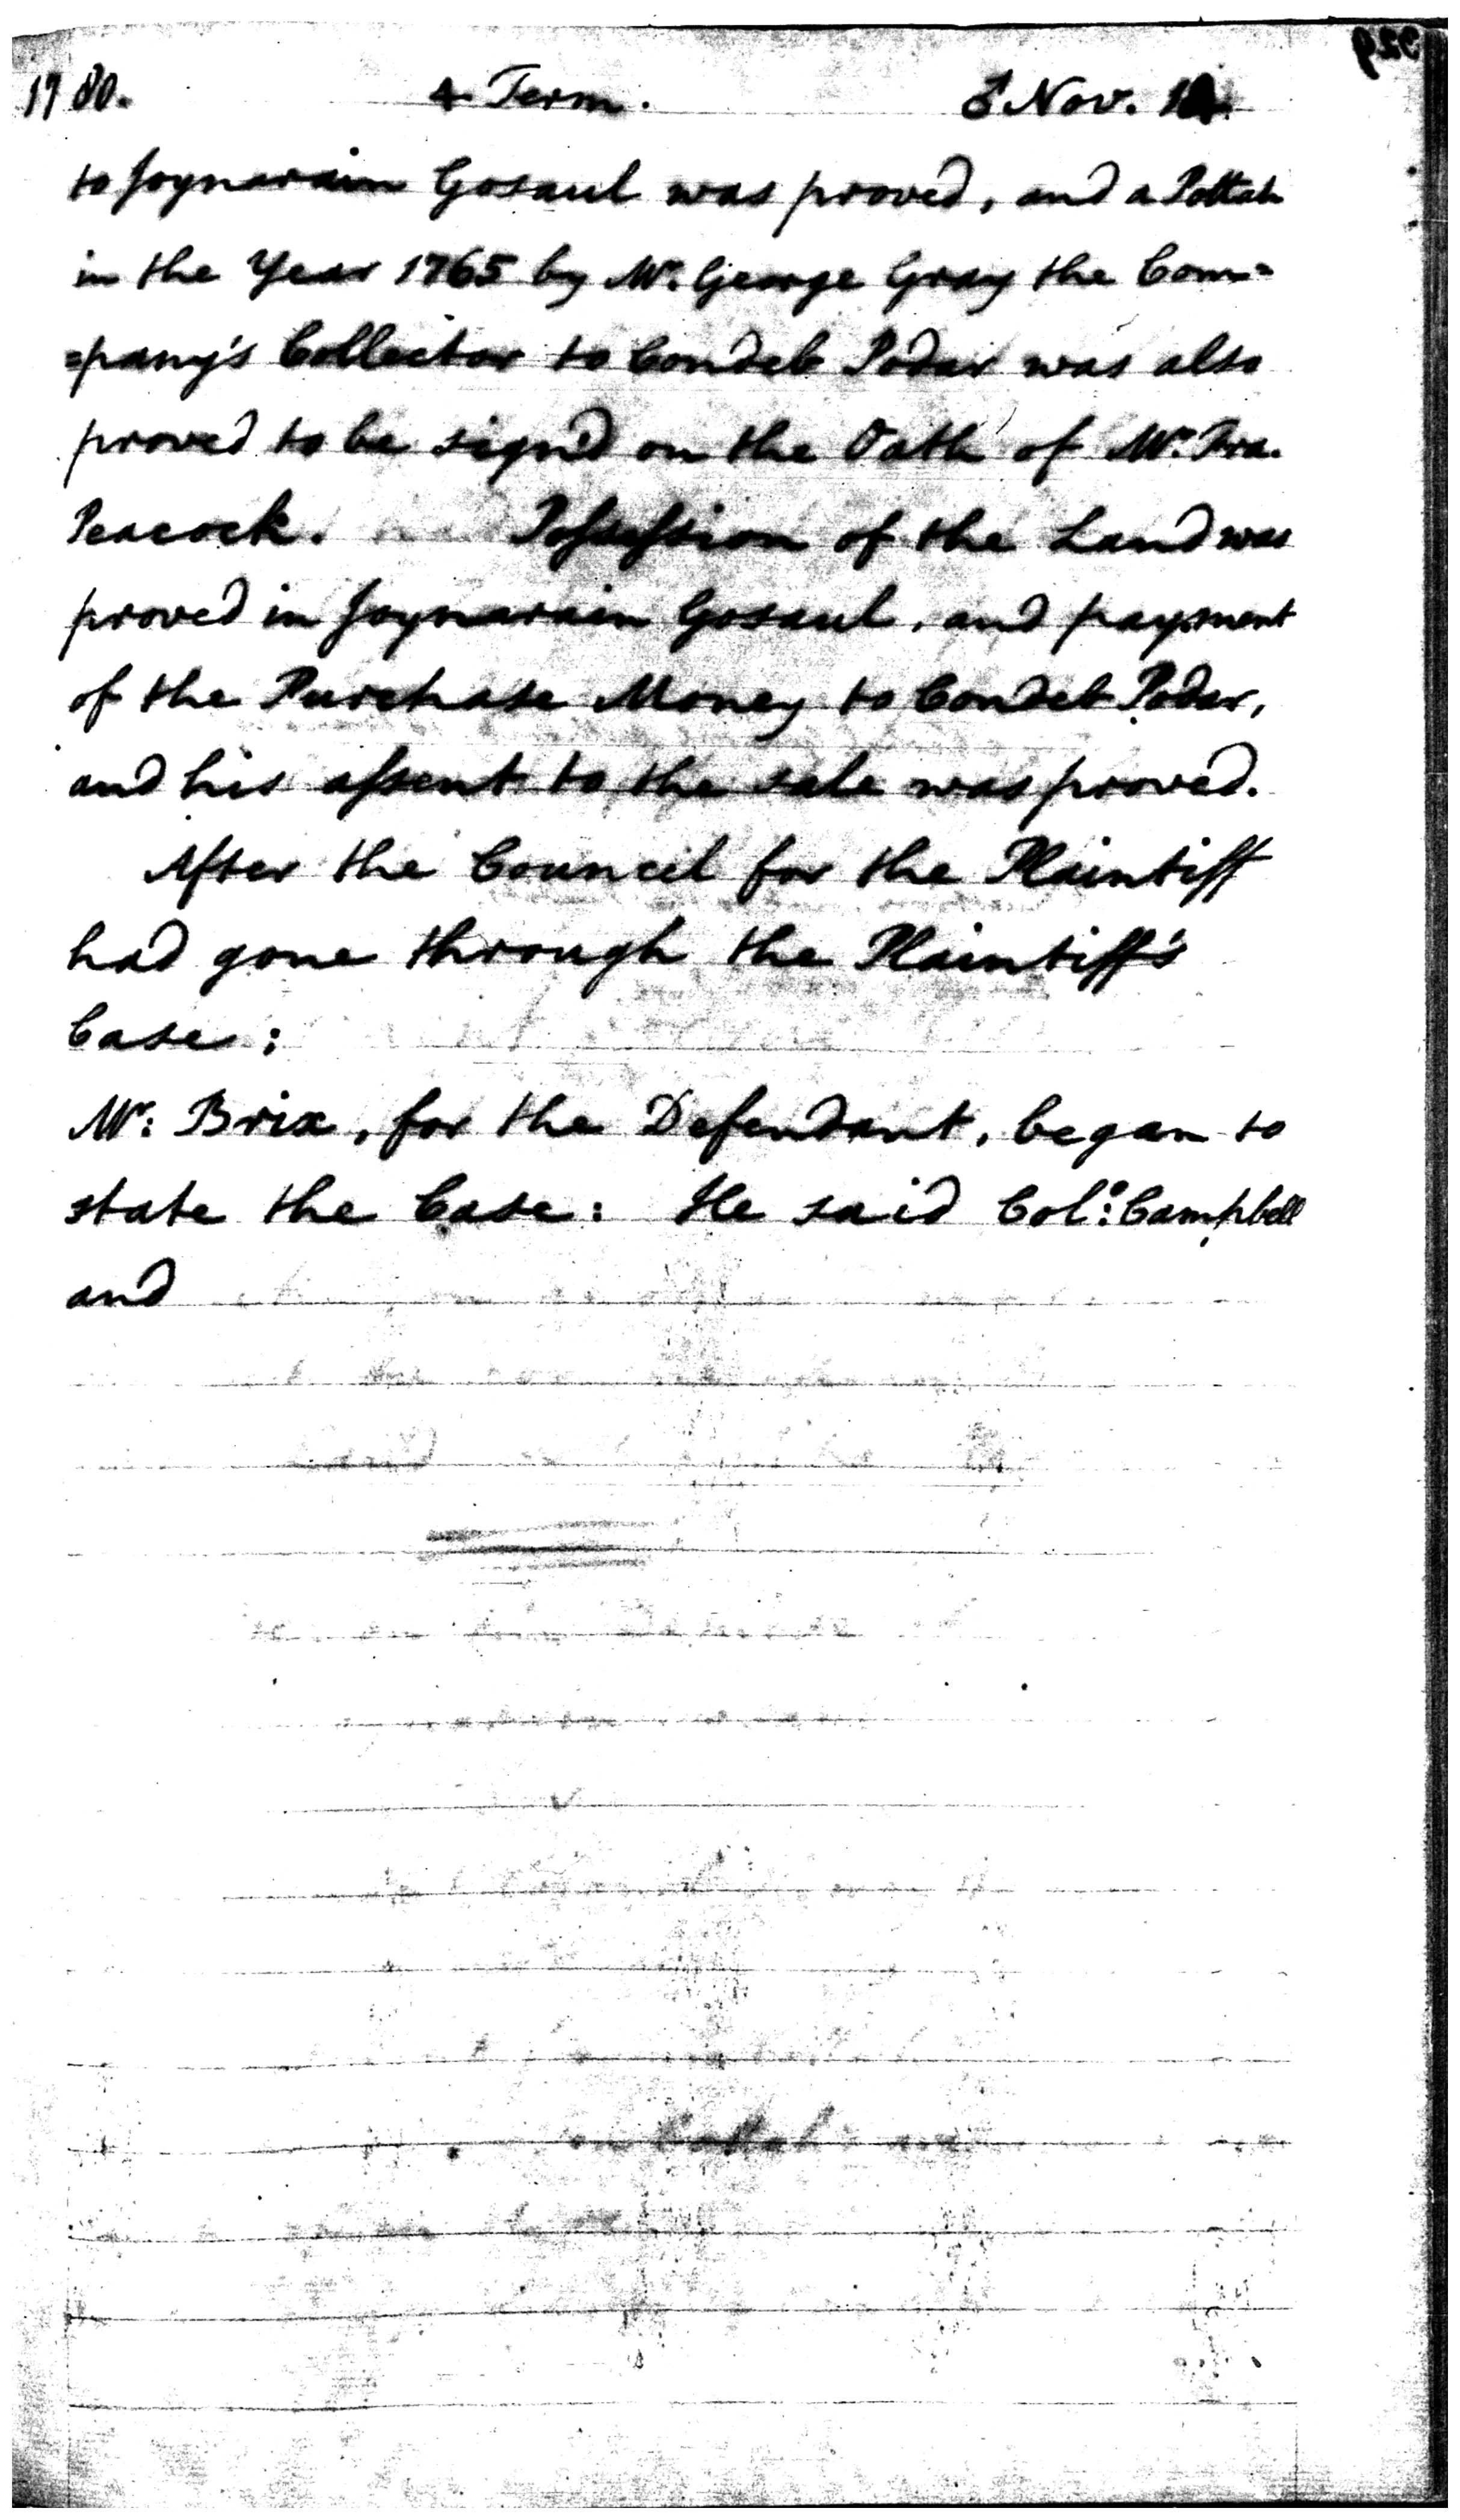 1780. 4 Term. Nov.
to Joynarain Gosaul was proved, and a Pottah
in the Year 1765 by Mr. George Gray the Com=
=pany's Collector to Condeb Podar was also
proved to be sign'd on the Oath of Mr. Fra.
Peacock. Possession of the Land was
proved in Joynarain Gosaul, and payment
of the Purchase Money to Condeb Podar,
and his assent to the sale was proved.
After the Council for the Plaintiff
had gone through the Plaintiff's
Case;
Mr: Brix, for the Defendant, began to
state the Case: He said Col: Campbell
and